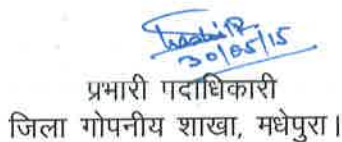 30/05/15
प्रभारी पदाधिकारी
जिला गोपनीय शाखा, मधेपुरा।